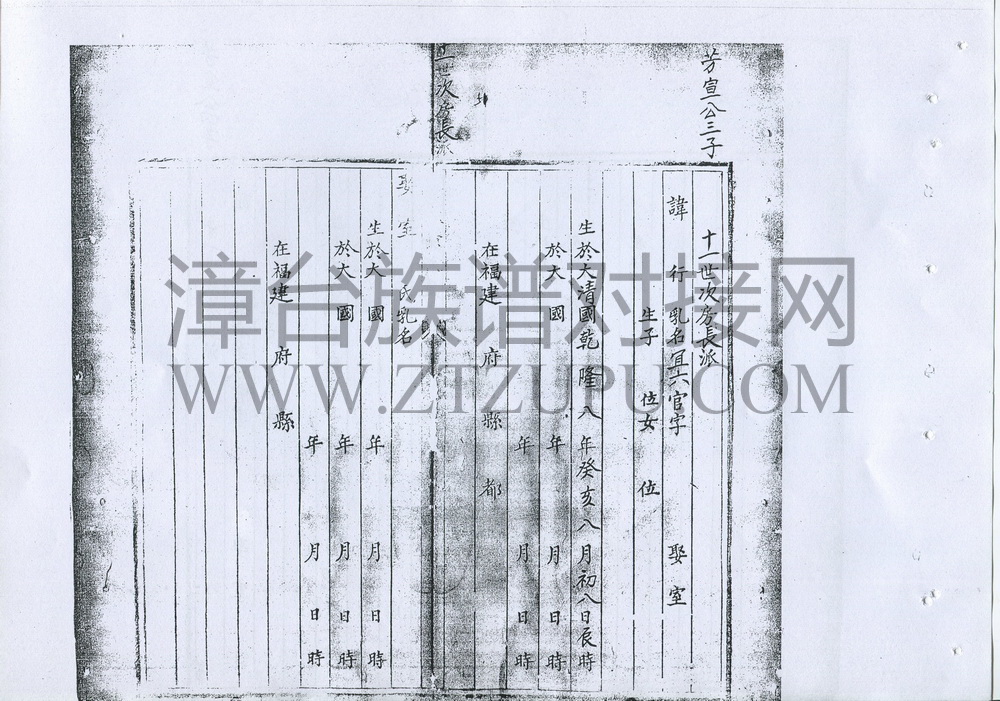 芳宣公三子
十一世次房長派
諱 行 乳名冥六官字 娶室
生子 位女 位
生於大清國乾隆八年癸亥八月初八日辰時
於大 國 年 月 日 時
年 月 日 時
在福建 府 縣 都
世次房長派
娶室 氏乳名
生於大 國 年 月 日 時
於大 國 年 月 日 時
年 月 日 時
在福建 府 縣
漳台族谱对接网
WWW.ZTZUPU.COM